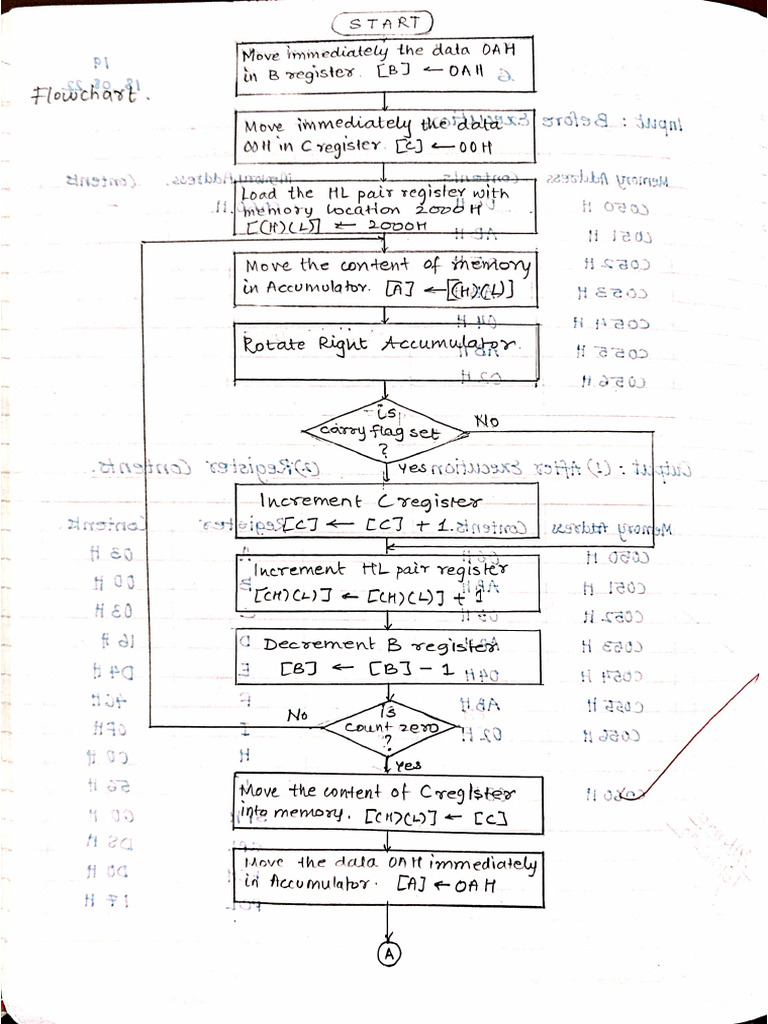 START
Flowchart.
Move immediately the data 0AH
in B register. [B] ← 0AH
Move immediately the data
00H in C register. [C] ← 00H
Load the HL pair register with
memory location 2000H
[(H)(L)] ← 2000H
Move the content of memory
in Accumulator. [A] ← [(H)(L)]
Rotate Right Accumulator.
is
carry flag set
?
No
yes
Increment C register
[C] ← [C] + 1.
Increment HL pair register
[(H)(L)] ← [(H)(L)] + 1
Decrement B register
[B] ← [B] - 1
Is
count zero
?
No
yes
Move the content of C register
into memory. [(H)(L)] ← [C]
Move the data 0AH immediately
in Accumulator. [A] ← 0AH
A